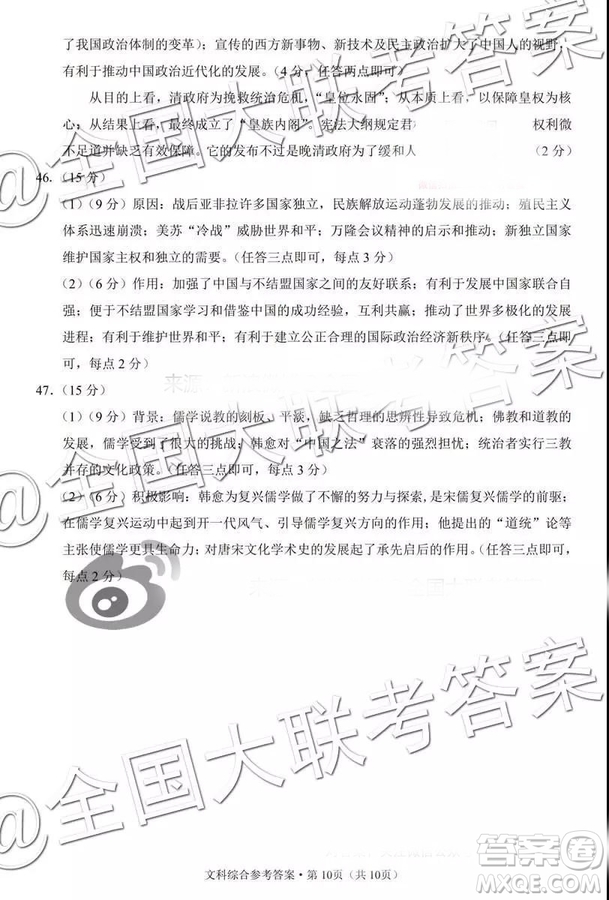 了我国政治体制的变革）；宣传的西方新事物、新技术及民主政治扩大了中国人的视野，
有利于推动中国政治近代化的发展。（4 分，任答两点即可）
从目的上看，清政府为挽救统治危机，“皇位永固”；从本质上看，以保障皇权为核
心；从结果上看，最终成立了“皇族内阁”。宪法大纲规定君 权利微
不足道并缺乏有效保障。它的发布不过是晚清政府为了缓和人 （2 分）
46.（15 分）
（1）（9 分）原因：战后亚非拉许多国家独立，民族解放运动蓬勃发展的推动；殖民主义
体系迅速崩溃；美苏“冷战”威胁世界和平；万隆会议精神的启示；新独立国家
维护国家主权和独立的需要。（任答三点即可，每点 3 分）
（2）（6 分）作用：加强了中国与不结盟国家之间的友好联系；有利于发展中国家联合自
强；便于不结盟国家学习和借鉴中国的成功经验，互利共赢；推动了世界多极化的发展
进程；有利于维护世界和平；有利于建立公正合理的国际政治经济新秩序。（任答三点即
可，每点 2 分）
47.（15 分）
（1）（9 分）背景：儒学说教的刻板、平淡，缺乏哲理的思辨性导致危机；佛教和道教的
发展，儒学受到了很大的挑战；韩愈对“中国之法”衰落的强烈担忧；统治者实行三教
并存的文化政策。（任答三点即可，每点 3 分）
（2）（6 分）积极影响：韩愈为复兴儒学做了不懈的努力与探索,是宋儒复兴儒学的前驱；
在儒学复兴运动中起到开一代风气、引导儒学复兴方向的作用；他提出的“道统”论等
主张使儒学更具生命力；对唐宋文化学术史的发展起了承先启后的作用。（任答三点即可，
每点 2 分）
@全国大联考答案
@全国大联考答案
文科综合参考答案·第 10页（共 10页）
答案圈
MXQE.COM